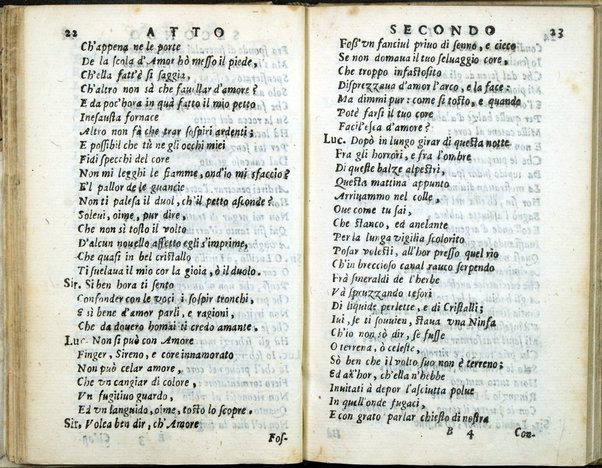 22 ATTO
Ch'appena ne le porte
De la scola d'Amor hò messo il piede,
Ch'ella fatt'è sì saggia,
Ch'altro non sà che fauellar d'amore?
E da poc'hora in quà fatto il mio petto
Inesausta fornace
Altro non sà che trar sospiri ardenti;
E possibil che tù ne gli occhi miei
Fidi specchi del core
Non mi legghi le fiamme, ond'io mi sfaccio?
E'l pallor de le guancie
Non ti palesa il duol, ch'il petto asconde?
Soleui, oime, pur dire,
Che non sì tosto il volto
D'alcun nouello affetto egli s'imprime,
Che quasi in bel cristallo
Ti suelaua il mio cor la gioia, ò il duolo.
Sir. Sì ben hora ti sento
Confonder con le voci i sospir tronchi,
E sì bene d'amor parli, e ragioni,
Che da douero homai ti credo amante.
Luc. Non si può con Amore
Finger, Sireno, e core innamorato
Non può celar amore,
Che vn cangiar di colore,
Vn fugitiuo guardo,
Ed vn languido, oime, tosto lo scopre.
Sir. Volea ben dir, ch'Amore
Fos-
SECONDO 23
Foss'vn fanciul priuo di senno, e cieco
Se non domaua il tuo seluaggio core,
Che troppo infastosito
Disprezzaua d'amor l'arco, e la face:
Ma dimmi pur: come sì tosto, e quando
Potè farsi il tuo core
Facil'esca d'amore?
Luc. Dopò in lungo girar di questa notte
Fra gli horrori, e fra l'ombre
Di queste balze alpestri,
Questa mattina appunto
Arriuammo nel colle,
Oue come tu sai,
Che stanco, ed anelante
Per la lunga vigilia scolorito
Posar volesti, all'hor presso quel rio
Ch'in breccioso canal rauco serpendo
Frà smeraldi de l'herbe
Và spruzzando tesori
Di liquide perlette, e di Cristalli;
Iui, se ti souuien, staua vna Ninfa
Ch'io non sò dir, se fusse
O terrena, ò celeste,
Sò ben che il volto suo non è terreno;
Ed all'hor, ch'ella n'hebbe
Inuitati à depor l'asciutta polue
In quell'onde fugaci,
E con grato parlar chiesto di nostra
B 4 Con-